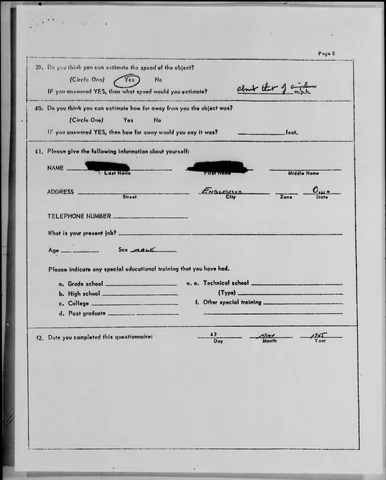 Page 8
39. Do you think you can estimate the speed of the object?
(Circle One) Yes No
IF you answered YES, then what speed would you estimate? about that of airplane
m.p.h.
40. Do you think you can estimate how far away from you the object was?
(Circle One) Yes No
IF you answered YES, then how far away would you say it was? feet.
41. Please give the following information about yourself:
NAME
Last Name First Name Middle Name
ADDRESS Englewood Ohio
Street City Zone State
TELEPHONE NUMBER
What is your present job?
Age Sex MALE
Please indicate any special educational training that you have had.
a. Grade school e. Technical school
b. High school (Type)
c. College f. Other special training
d. Post graduate
42. Date you completed this questionnaire: 27
Day Month Year